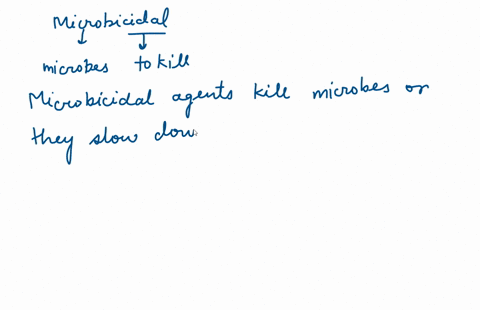 Microbicidal
microbes to kill
Microbicidal agents kill microbes or
they slow dow